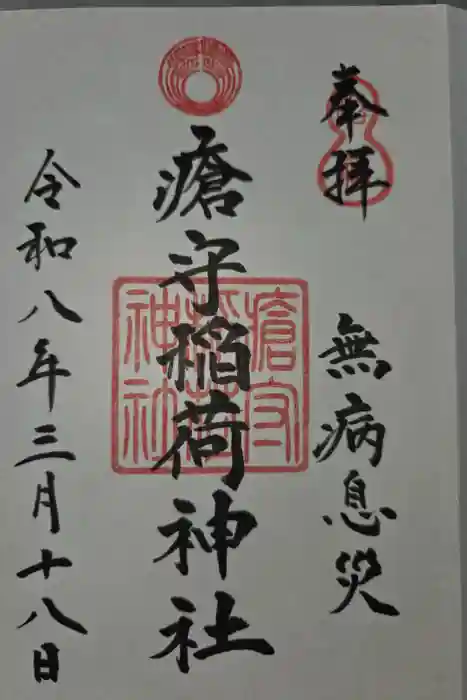 奉拝
無病息災
瘡守稲荷神社
瘡守稲荷神社
令和八年三月十八日